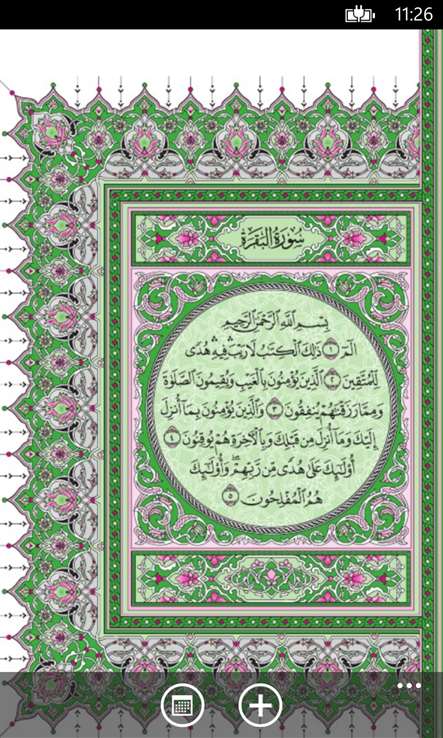 11:26
سُورَةُ البَقَرَةِ
بِسْمِ اللَّهِ الرَّحْمَٰنِ الرَّحِيمِ
الٓمٓ ١ ذَٰلِكَ الْكِتَٰبُ لَا رَيْبَ ۛ فِيهِ ۛ هُدًى
لِّلْمُتَّقِينَ ٢ الَّذِينَ يُؤْمِنُونَ بِالْغَيْبِ وَيُقِيمُونَ الصَّلَوٰةَ
وَمِمَّا رَزَقْنَٰهُمْ يُنفِقُونَ ٣ وَالَّذِينَ يُؤْمِنُونَ بِمَآ أُنزِلَ
إِلَيْكَ وَمَآ أُنزِلَ مِن قَبْلِكَ وَبِالْءَاخِرَةِ هُمْ يُوقِنُونَ ٤
أُو۟لَٰٓئِكَ عَلَىٰ هُدًى مِّن رَّبِّهِمْ ۖ وَأُو۟لَٰٓئِكَ
هُمُ الْمُفْلِحُونَ ٥